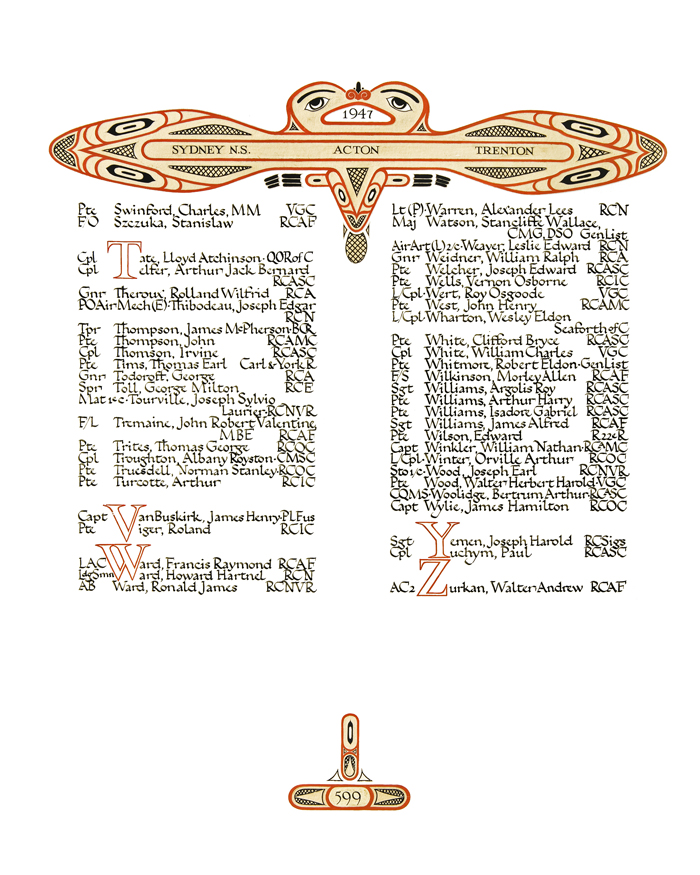 1947
SYDNEY N.S. ACTON TRENTON
Pte Swinford, Charles, MM VGC
FO Szczuka, Stanislaw RCAF
Cpl Tate, Lloyd Atchinson·QORofC
Cpl Telfer, Arthur Jack Bernard
RCASC
Gnr Theroux, Rolland Wilfrid RCA
POAirMech(E)·Thibodeau, Joseph Edgar
RCN
Tpr Thompson, James McPherson·BCR
Pte Thompson, John RCAMC
Cpl Thomson, Irvine RCASC
Pte Tims, Thomas Earl Carl&YorkR
Gnr Todoroff, George RCA
Spr Toll, George Milton RCE
Mat1·c·Tourville, Joseph Sylvio
Laurier·RCNVR
F/L Tremaine, John Robert Valentine,
MBE RCAF
Pte Trites, Thomas George RCOC
Cpl Troughton, Albany Royston·CMSC
Pte Truesdell, Norman Stanley·RCOC
Pte Turcotte, Arthur RCIC
Capt VanBuskirk, James Henry·PLFus
Pte Viger, Roland RCIC
LAC Ward, Francis Raymond RCAF
LdgSmn Ward, Howard Hartnel RCN
AB Ward, Ronald James RCNVR
Lt (P)·Warren, Alexander Lees RCN
Maj Watson, Stancliffe Wallace,
CMG,DSO GenList
AirArt(L)2/c·Weaver, Leslie Edward RCN
Gnr Weidner, William Ralph RCA
Pte Welcher, Joseph Edward RCASC
Pte Wells, Vernon Osborne RCIC
L/Cpl·Wert, Roy Osgoode VGC
Pte West, John Henry RCAMC
L/Cpl·Wharton, Wesley Eldon
SeaforthofC
Pte White, Clifford Bryce RCASC
Cpl White, William Charles VGC
Pte Whitmore, Robert Eldon·GenList
F/S Wilkinson, Morley Allen RCAF
Sgt Williams, Argolis Roy RCASC
Pte Williams, Arthur Harry RCASC
Pte Williams, Isadore Gabriel RCASC
Sgt Williams, James Alfred RCAF
Pte Wilson, Edward R22eR
Capt Winkler, William Nathan·RCAMC
L/Cpl·Winter, Orville Arthur RCOC
Sto1/c·Wood, Joseph Earl RCNVR
Pte Wood, Walter Herbert Harold·VGC
CQMS·Woolidge, Bertrum Arthur·RCASC
Capt Wylie, James Hamilton RCOC
Sgt Yemen, Joseph Harold RCSigs
Cpl Yuchym, Paul RCASC
AC2 Zurkan, Walter Andrew RCAF
599